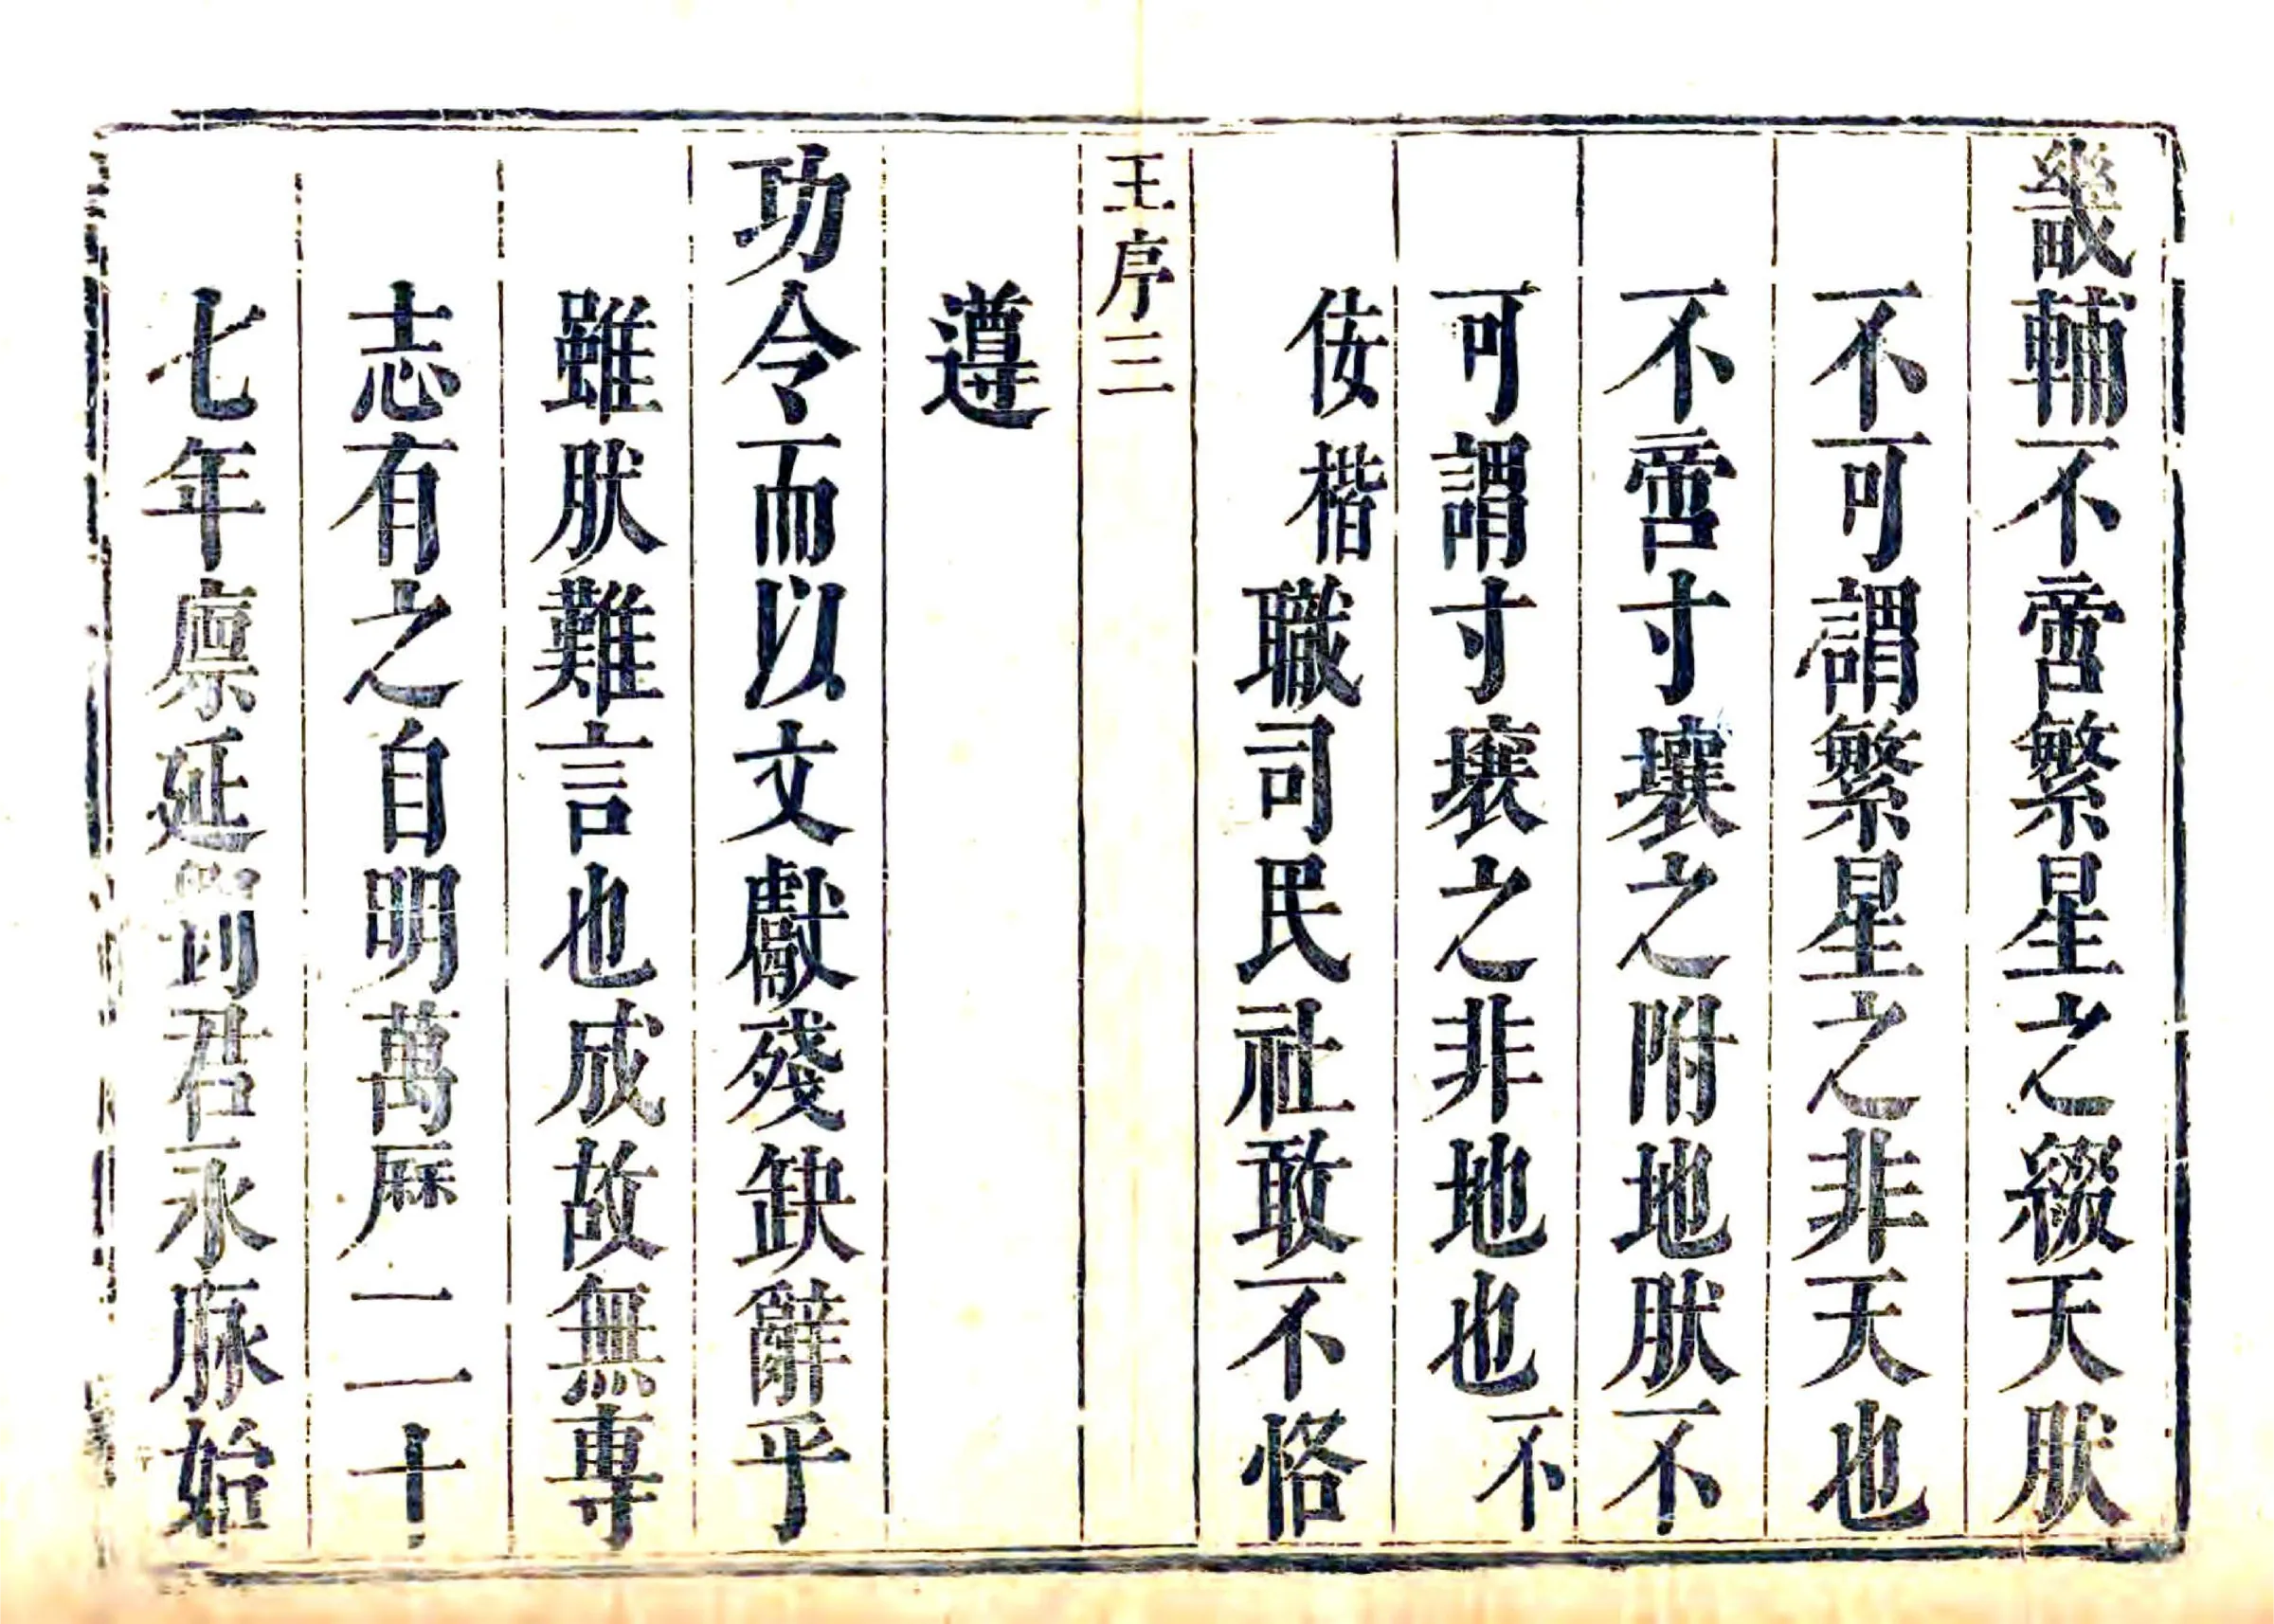 畿輔不啻繁星之綴天肰
不可謂繁星之非天也
不啻寸壤之附地肰不
可謂寸壤之非地也不
佞楷職司民社敢不恪
王序三
遵
功令而以文獻殘缺辭乎
雖肰難言也成故無專
志有之自明萬厤二十
七年廪延君永脈始